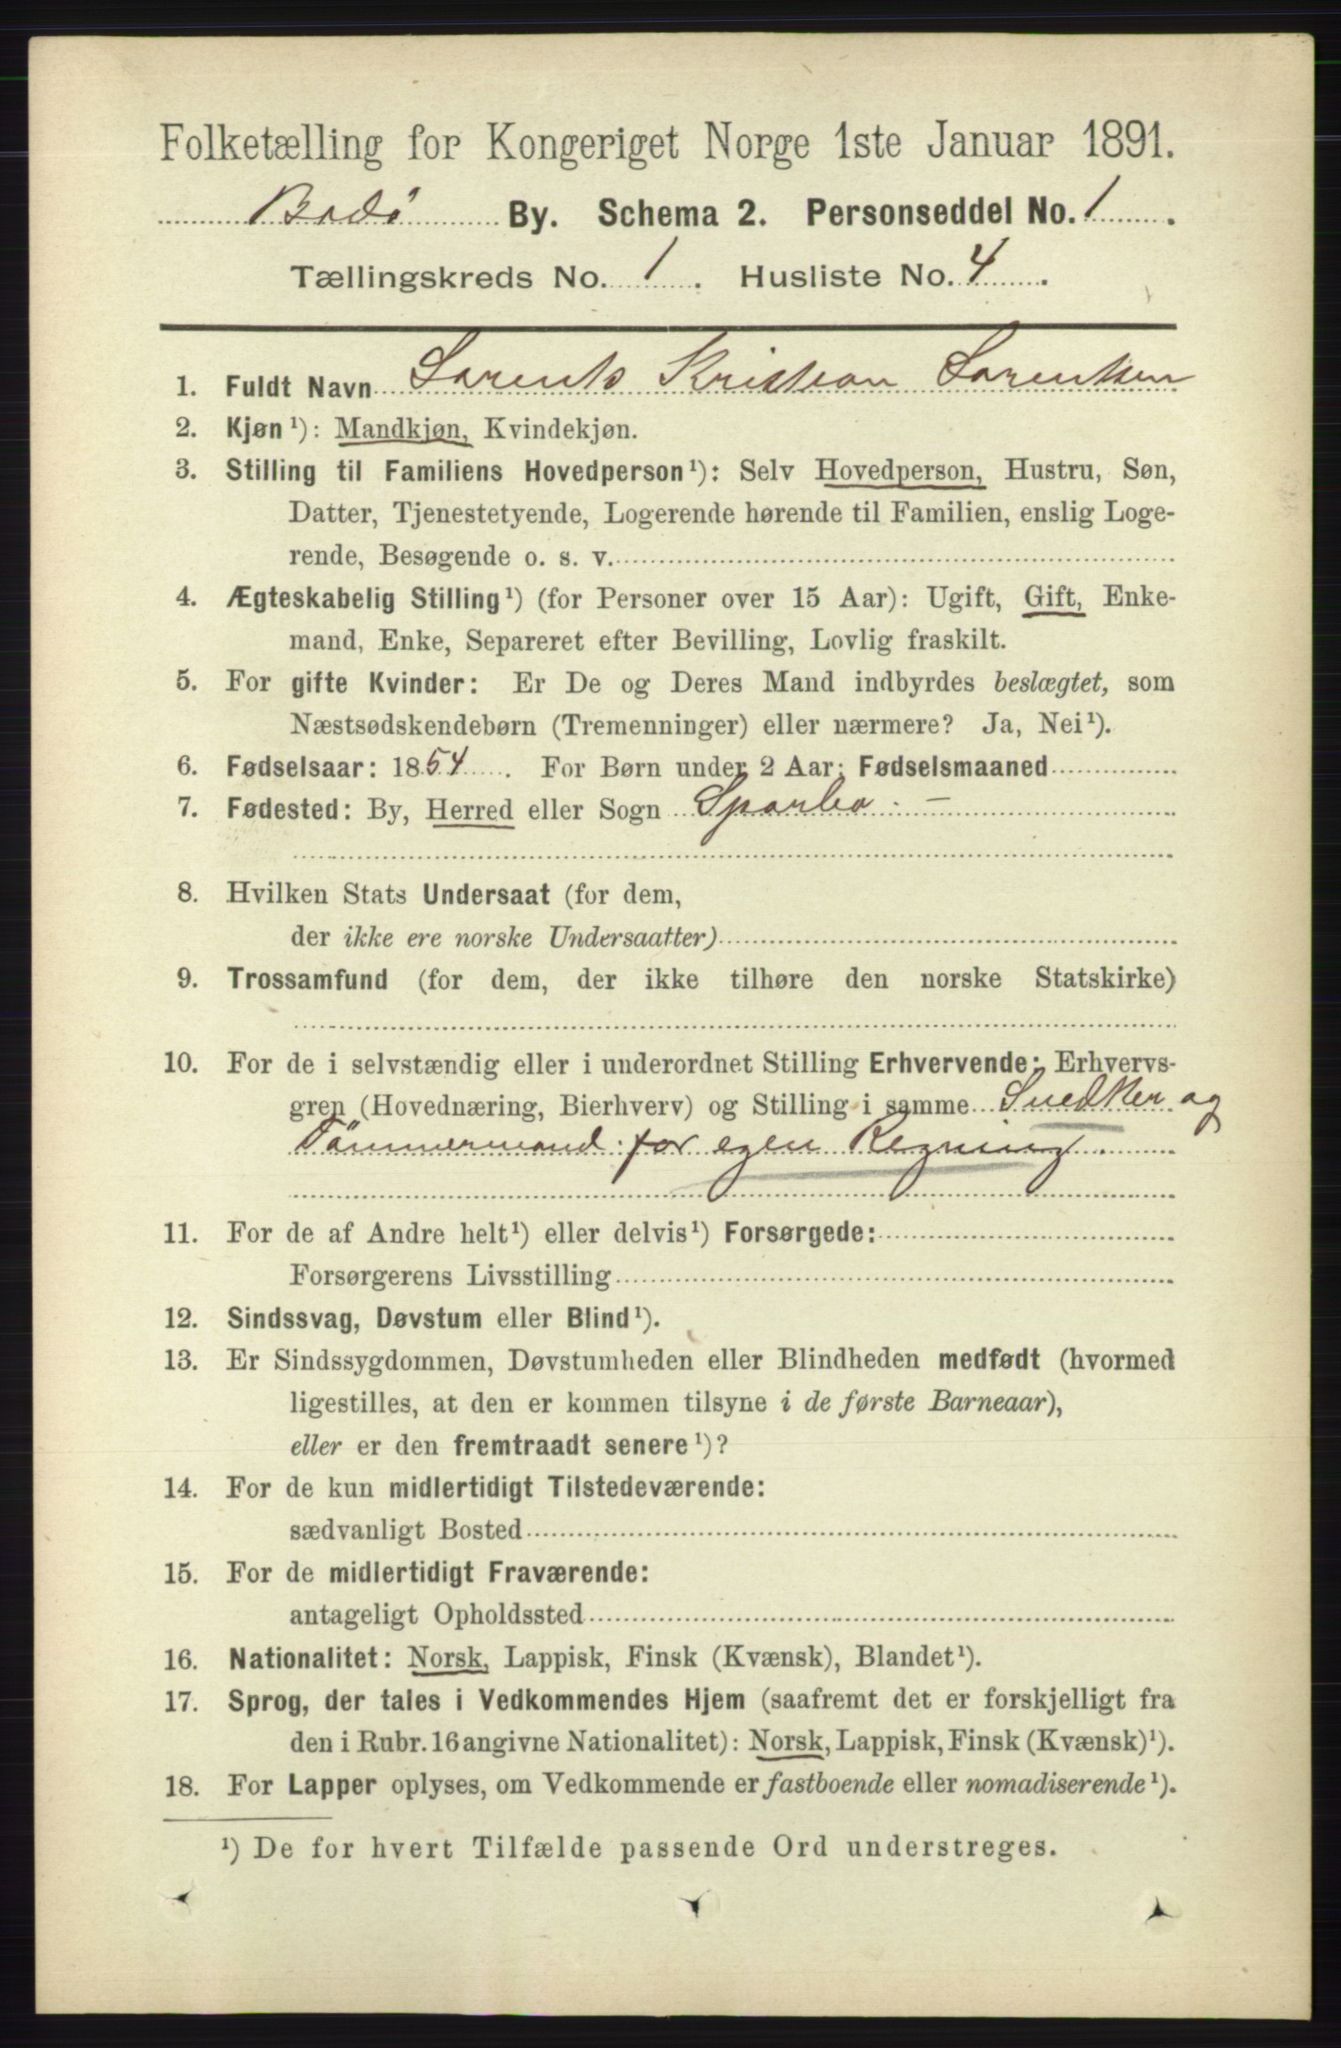 Folketælling for Kongeriget Norge 1ste Januar 1891.
Bodø By. Schema 2. Personseddel No. 1.
Tællingskreds No. 1. Husliste No. 4.
1. Fuldt Navn Lorents Kristian Lorentsen
2. Kjøn¹): Mandkjøn, Kvindekjøn.
3. Stilling til Familiens Hovedperson¹): Selv Hovedperson, Hustru, Søn,
Datter, Tjenestetyende, Logerende hørende til Familien, enslig Loge-
rende, Besøgende o. s. v.
4. Ægteskabelig Stilling¹) (for Personer over 15 Aar): Ugift, Gift, Enke-
mand, Enke, Separeret efter Bevilling, Lovlig fraskilt.
5. For gifte Kvinder: Er De og Deres Mand indbyrdes beslægtet, som
Næstsødskendebørn (Tremenninger) eller nærmere? Ja, Nei¹).
6. Fødselsaar: 1854. For Børn under 2 Aar: Fødselsmaaned
7. Fødested: By, Herred eller Sogn Sparbo. –
8. Hvilken Stats Undersaat (for dem,
der ikke ere norske Undersaatter)
9. Trossamfund (for dem, der ikke tilhøre den norske Statskirke)
10. For de i selvstændig eller i underordnet Stilling Erhvervende: Erhvervs-
gren (Hovednæring, Bierhverv) og Stilling i samme Snedker og
Tömmermand for egen Regning.
11. For de af Andre helt¹) eller delvis¹) Forsørgede:
Forsørgerens Livsstilling
12. Sindssvag, Døvstum eller Blind¹).
13. Er Sindssygdommen, Døvstumheden eller Blindheden medfødt (hvormed
ligestilles, at den er kommen tilsyne i de første Barneaar),
eller er den fremtraadt senere¹)?
14. For de kun midlertidigt Tilstedeværende:
sædvanligt Bosted
15. For de midlertidigt Fraværende:
antageligt Opholdssted
16. Nationalitet: Norsk, Lappisk, Finsk (Kvænsk), Blandet¹).
17. Sprog, der tales i Vedkommendes Hjem (saafremt det er forskjelligt fra
den i Rubr. 16 angivne Nationalitet): Norsk, Lappisk, Finsk (Kvænsk)¹).
18. For Lapper oplyses, om Vedkommende er fastboende eller nomadiserende¹).
¹) De for hvert Tilfælde passende Ord understreges.